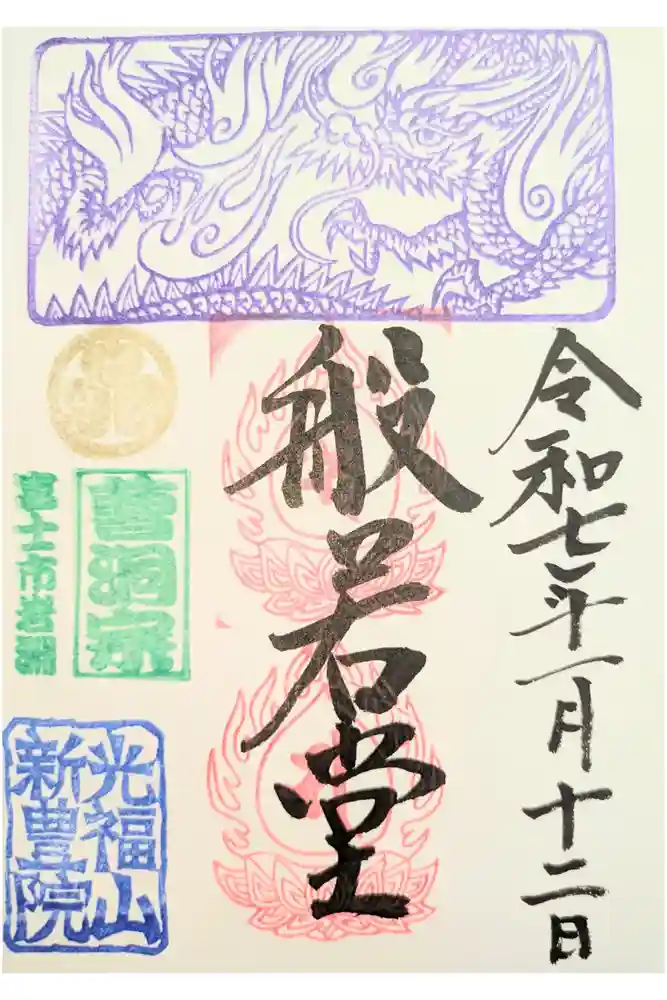 令和七年一月十二日
般若堂
曹洞宗
光福山
新豊院